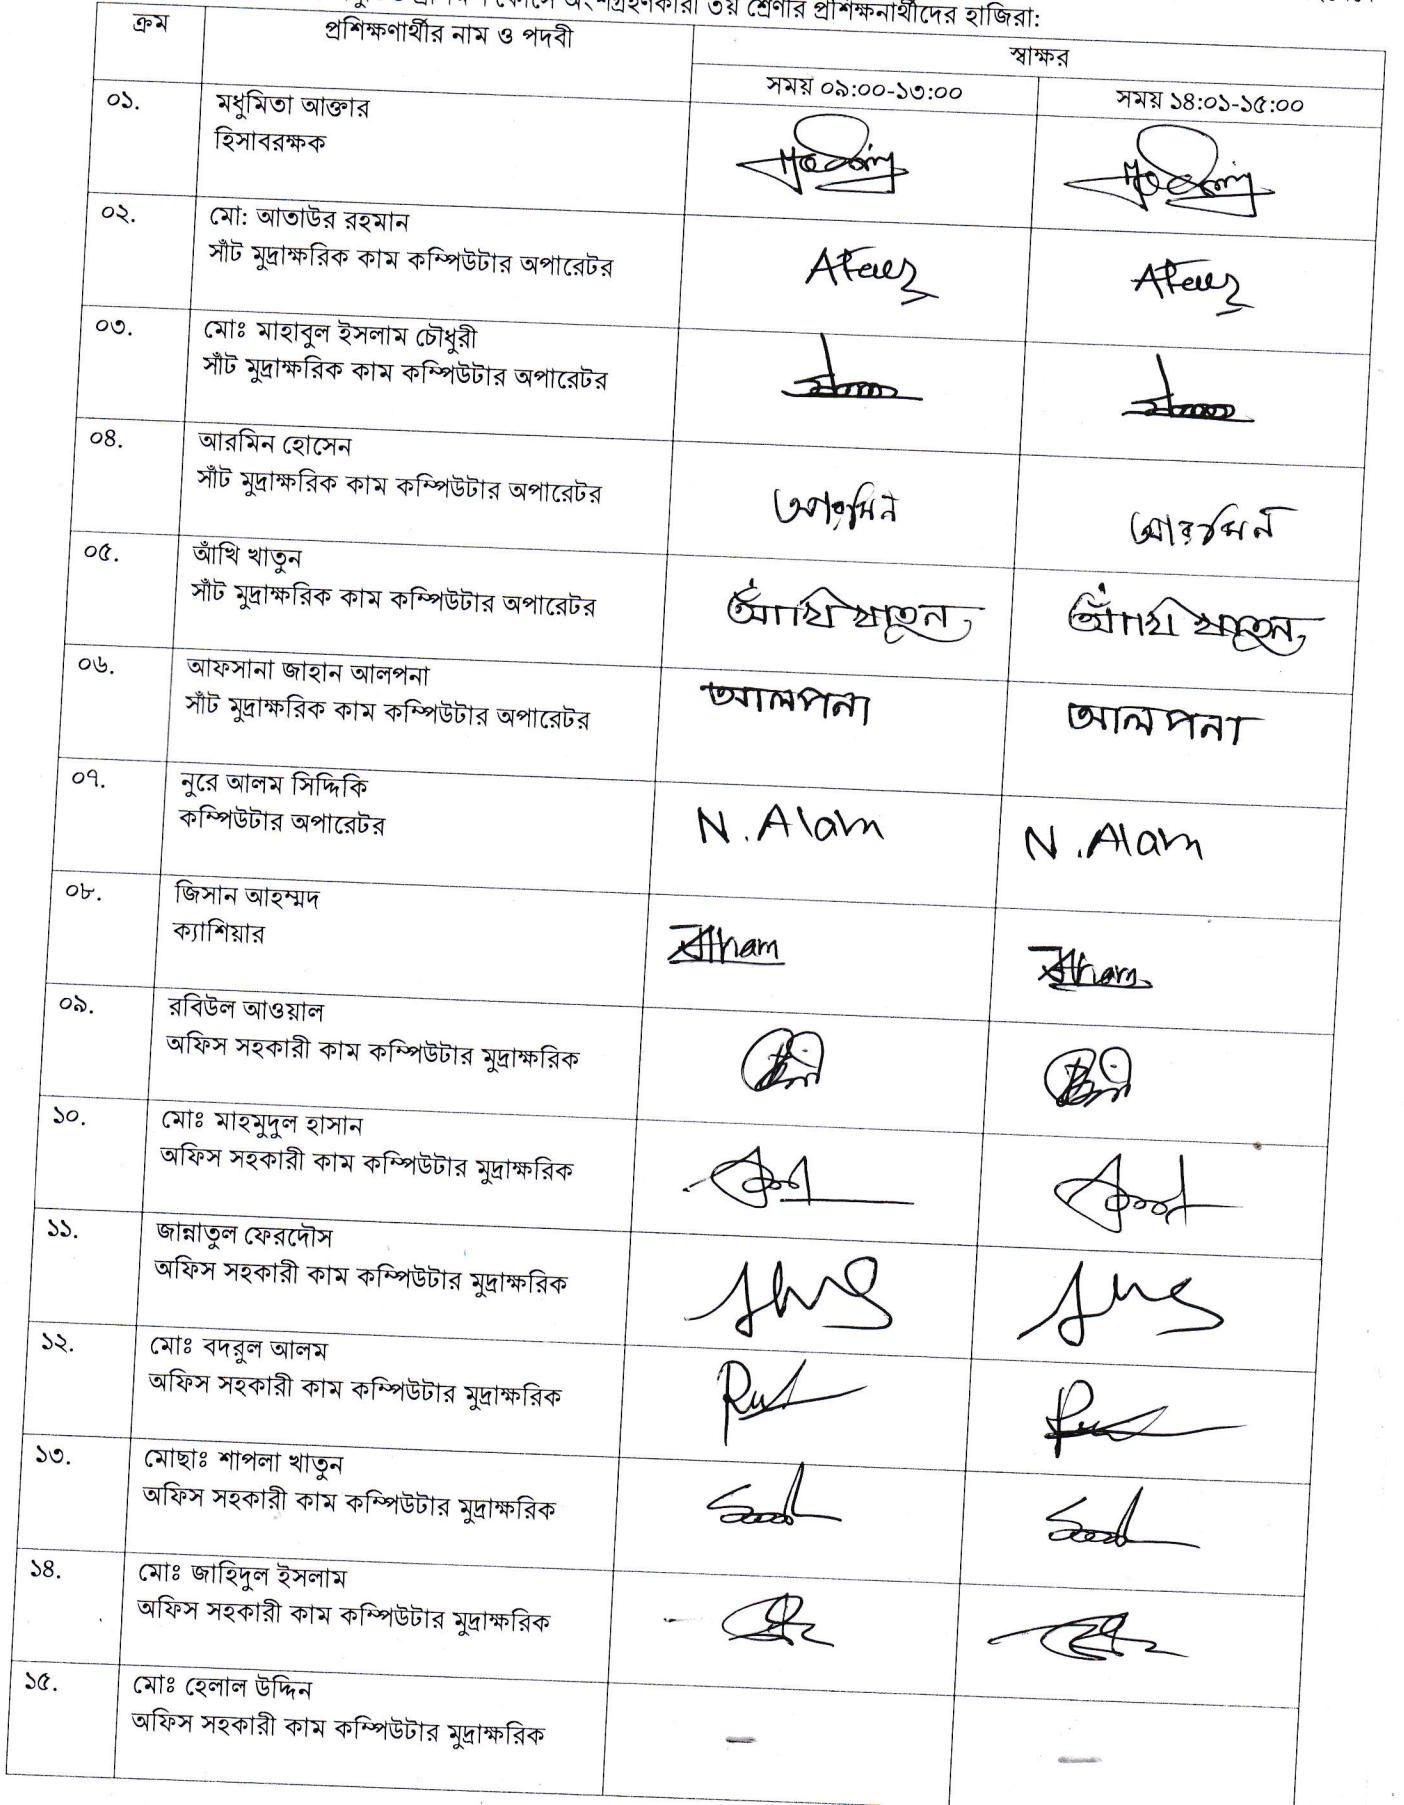 অংশগ্রহণকারী ৩য় শ্রেণীর প্রশিক্ষনার্থীদের হাজিরা:
ক্রম প্রশিক্ষণার্থীর নাম ও পদবী স্বাক্ষর
সময় ০৯:০০-১৩:০০ সময় ১৪:০১-১৫:০০
০১. মধুমিতা আক্তার
হিসাবরক্ষক
০২. মো: আতাউর রহমান
সাঁট মুদ্রাক্ষরিক কাম কম্পিউটার অপারেটর
০৩. মোঃ মাহাবুল ইসলাম চৌধুরী
সাঁট মুদ্রাক্ষরিক কাম কম্পিউটার অপারেটর
০৪. আরমিন হোসেন
সাঁট মুদ্রাক্ষরিক কাম কম্পিউটার অপারেটর
আরমিন আরমিন
০৫. আঁখি খাতুন
সাঁট মুদ্রাক্ষরিক কাম কম্পিউটার অপারেটর
আঁখি খাতুন আঁখি খাতুন
০৬. আফসানা জাহান আলপনা
সাঁট মুদ্রাক্ষরিক কাম কম্পিউটার অপারেটর
আলপনা আলপনা
০৭. নুরে আলম সিদ্দিকি
কম্পিউটার অপারেটর
N. Alam N. Alam
০৮. জিসান আহম্মদ
ক্যাশিয়ার
০৯. রবিউল আওয়াল
অফিস সহকারী কাম কম্পিউটার মুদ্রাক্ষরিক
১০. মোঃ মাহমুদুল হাসান
অফিস সহকারী কাম কম্পিউটার মুদ্রাক্ষরিক
১১. জান্নাতুল ফেরদৌস
অফিস সহকারী কাম কম্পিউটার মুদ্রাক্ষরিক
১২. মোঃ বদরুল আলম
অফিস সহকারী কাম কম্পিউটার মুদ্রাক্ষরিক
১৩. মোছাঃ শাপলা খাতুন
অফিস সহকারী কাম কম্পিউটার মুদ্রাক্ষরিক
১৪. মোঃ জাহিদুল ইসলাম
অফিস সহকারী কাম কম্পিউটার মুদ্রাক্ষরিক
১৫. মোঃ হেলাল উদ্দিন
অফিস সহকারী কাম কম্পিউটার মুদ্রাক্ষরিক